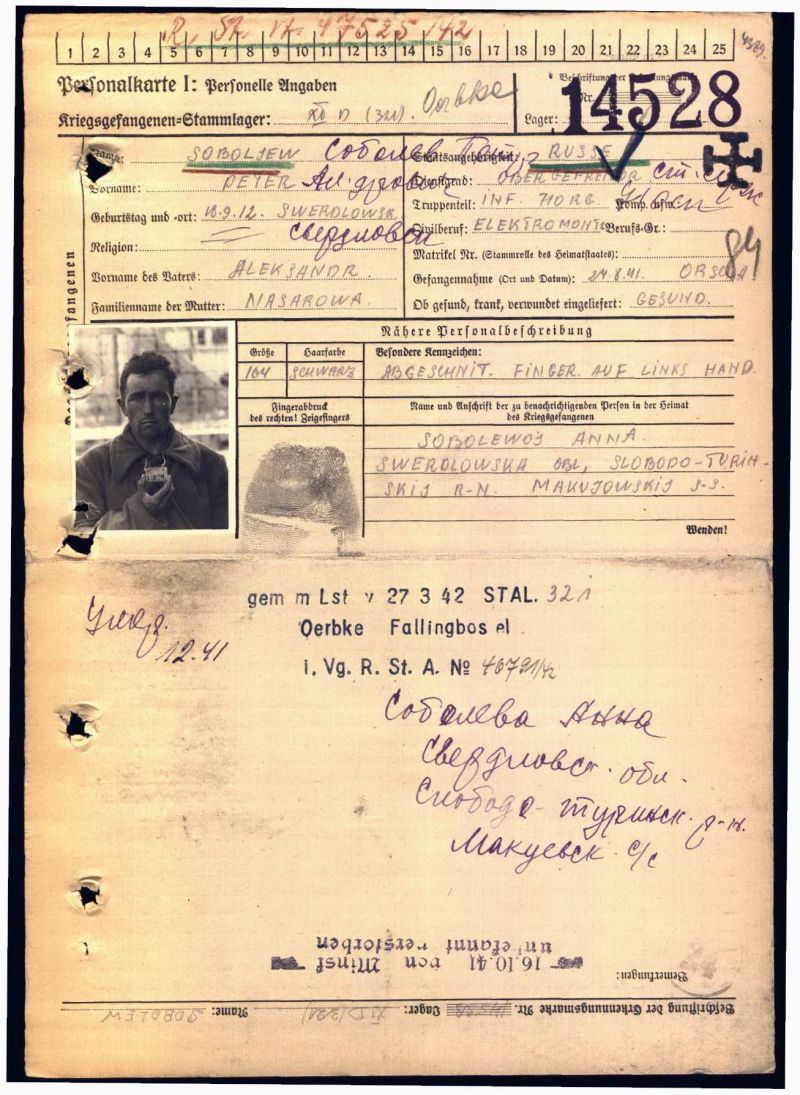 R. St. A. № 47525/42
1 2 3 4 5 6 7 8 9 10 11 12 13 14 15 16 17 18 19 20 21 22 23 24 25
Personalkarte I: Personelle Angaben
Beschriftung der Erkennungsmarke
Nr. 14528
Kriegsgefangenen-Stammlager: XI D (321) Oerbke
Lager:
Name: SOBOLJEW Соболев
Staatsangehörigkeit: RUSSE
Vorname: PETER
Dienstgrad: OBERGEFREITOR
Geburtstag und -ort: 16.9.12. SWERDLOWSK
Truppenteil: INF. 710 RG. Komp. usw.
Religion: Свердловск
Zivilberuf: ELEKTROMONTE Berufs-Gr.:
Matrikel Nr. (Stammrolle des Heimatstaates):
84
Vorname des Vaters: ALEKSANDR.
Gefangennahme (Ort und Datum): 24.8.41. ORSCHA
Familienname der Mutter: NASAROWA.
Ob gesund, krank, verwundet eingeliefert: GESUND.
Nähere Personalbeschreibung
Größe Haarfarbe Besondere Kennzeichen:
164 SCHWARZ ABGESCHNIT. FINGER. AUF LINKS HAND.
Fingerabdruck
des rechten! Zeigefingers
Name und Anschrift der zu benachrichtigenden Person in der Heimat
des Kriegsgefangenen
SOBOLEWOJ ANNA
SWERDLOWSKA OBL, SLOBODO-TURIN-
SKIJ R-N. MAKUJOWSKIJ S-S.
Wenden!
gem m Lst v 27 3 42 STAL. 321
Oerbke Fallingbos el
i. Vg. R. St. A. № 46791/42
Умер.
12.41
Соболева Анна
Свердловск. обл.
Слободо-туринск. р-н.
Макуевск. с/с
16.10.41 von Minsk
unbekannt verstorben
Bemerkungen:
24
Beschriftung der Erkennungsmarke Nr. Lager: XI D (321) Name: SOBOLEW